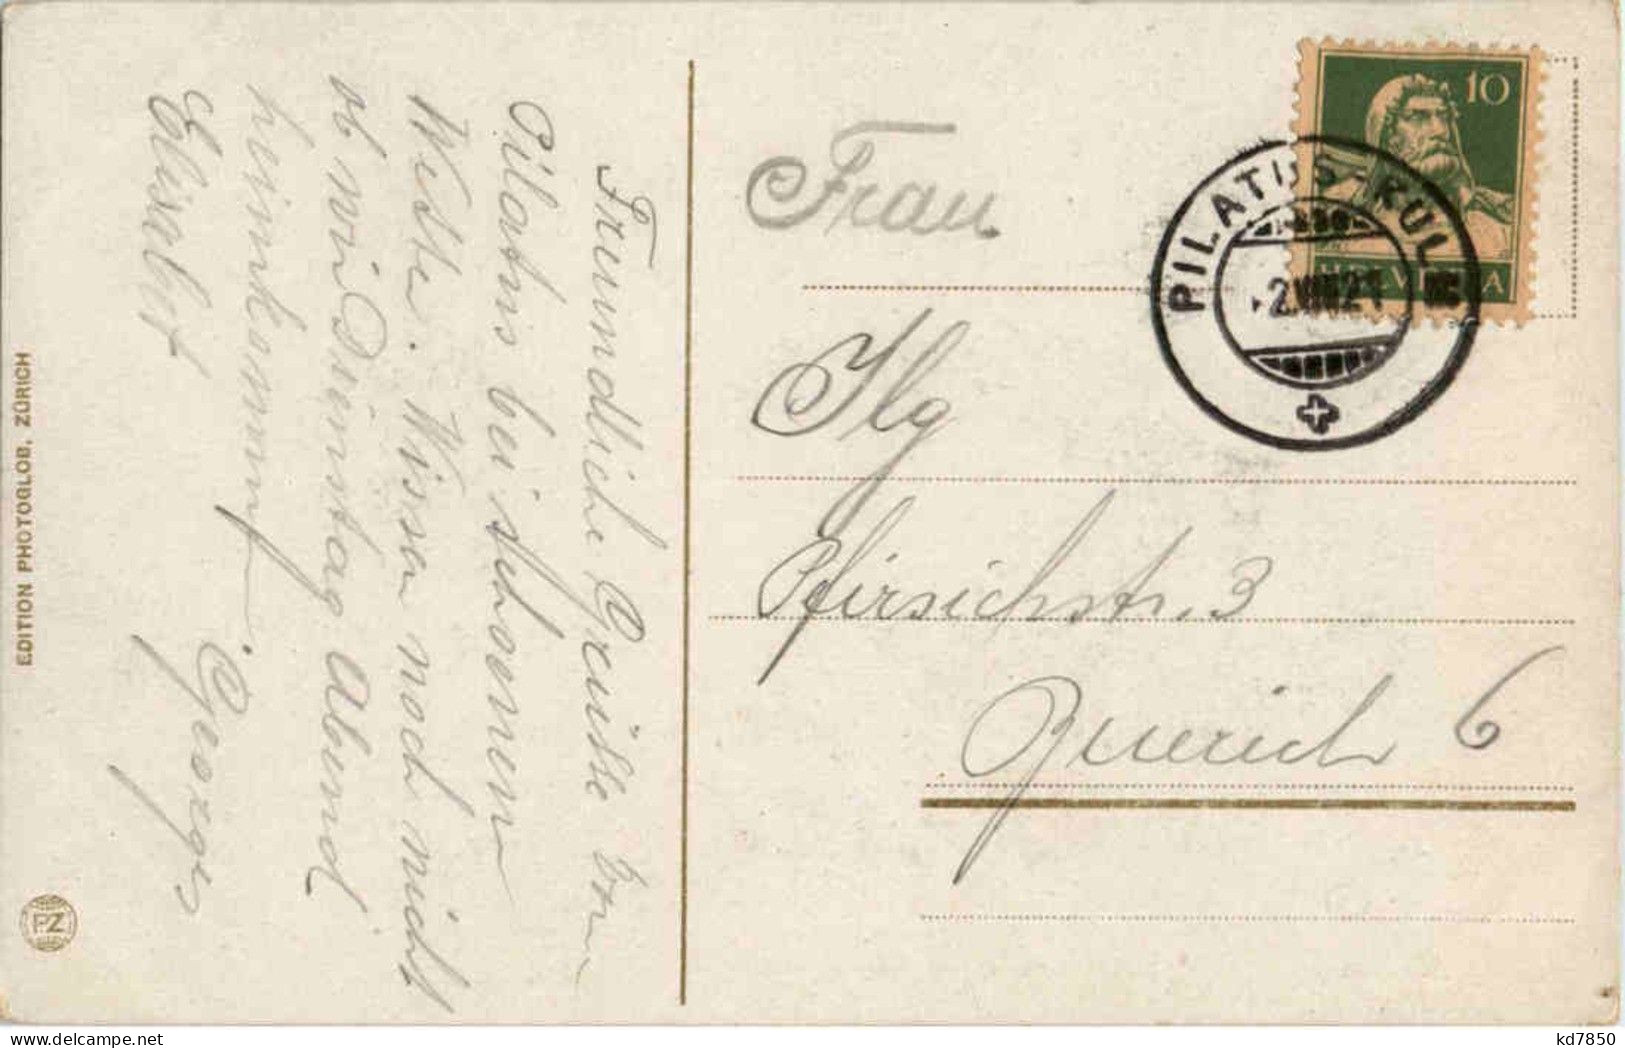 Freundliche Grüsse von
Pilatus bei schönem
Wetter. Wissen noch nicht
ob wir Dienstag Abend
heimkommen.
Elisabet Georges
Frau
Ilg
Pfirsichstr. 3
Zuerich 6
10
HELVETIA
PILATUS-KULM
2.VIII.21
EDITION PHOTOGLOB, ZÜRICH
PZ
kd7850